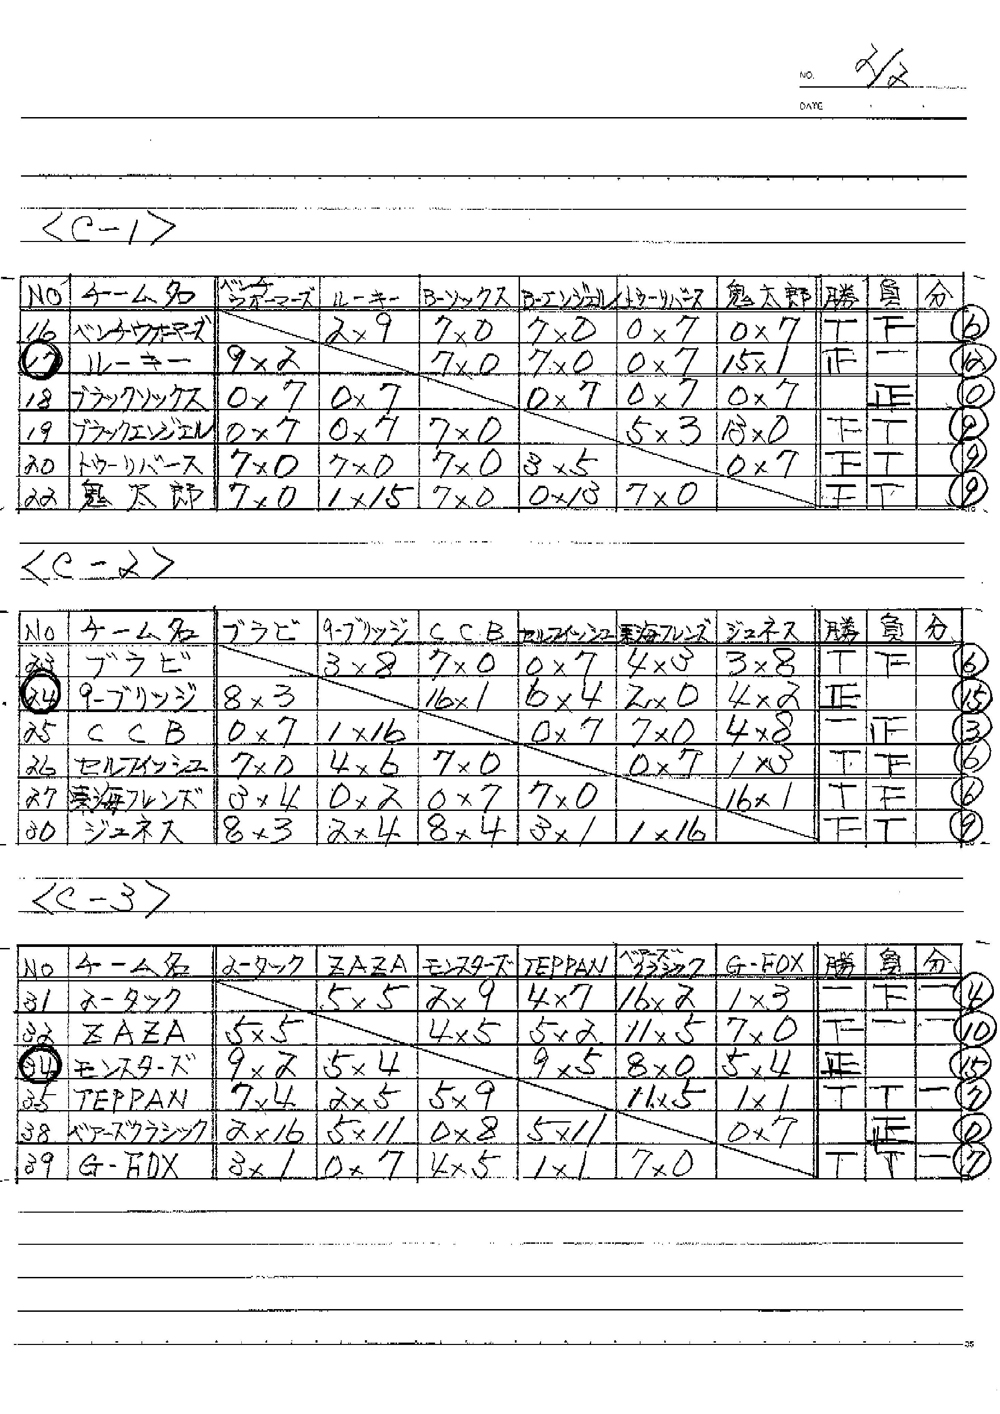 NO. 2/2
DATE
<C-1>
NO チーム名 ベンチウォーマーズ ルーキー B-ソックス B-エンジェル トゥーリバース 鬼太郎 勝 負 分
16 ベンチウォーマーズ 2×9 7×0 7×0 0×7 0×7 T 下 6
17 ルーキー 9×2 7×0 7×0 0×7 15×1 正 一 12
18 ブラックソックス 0×7 0×7 0×7 0×7 0×7 正 0
19 ブラックエンジェル 0×7 0×7 7×0 5×3 13×0 下 T 9
20 トゥーリバース 7×0 7×0 7×0 3×5 0×7 下 T 9
22 鬼太郎 7×0 1×15 7×0 0×13 7×0 下 T 9
<C-2>
NO チーム名 ブラビ 9-ブリッジ CCB セルフィッシュ 東海フレンズ ジュネス 勝 負 分
23 ブラビ 3×8 7×0 0×7 4×3 3×8 T 下 6
24 9-ブリッジ 8×3 16×1 6×4 2×0 4×2 正 15
25 CCB 0×7 1×16 0×7 7×0 4×8 一 正 3
26 セルフィッシュ 7×0 4×6 7×0 0×7 1×3 T 下 6
27 東海フレンズ 3×4 0×2 0×7 7×0 16×1 T 下 6
30 ジュネス 8×3 2×4 8×4 3×1 1×16 下 T 9
<C-3>
NO チーム名 ユータック ZAZA モンスターズ TEPPAN ベアーズクラシック G-FOX 勝 負 分
31 ユータック 5×5 2×9 4×7 16×2 1×3 一 下 一 4
32 ZAZA 5×5 4×5 5×2 11×5 7×0 下 一 一 10
34 モンスターズ 9×2 5×4 9×5 8×0 5×4 正 15
35 TEPPAN 7×4 2×5 5×9 11×5 1×1 T T 一 7
38 ベアーズクラシック 2×16 5×11 0×8 5×11 0×7 正 0
39 G-FOX 3×1 0×7 4×5 1×1 7×0 T T 一 7
35